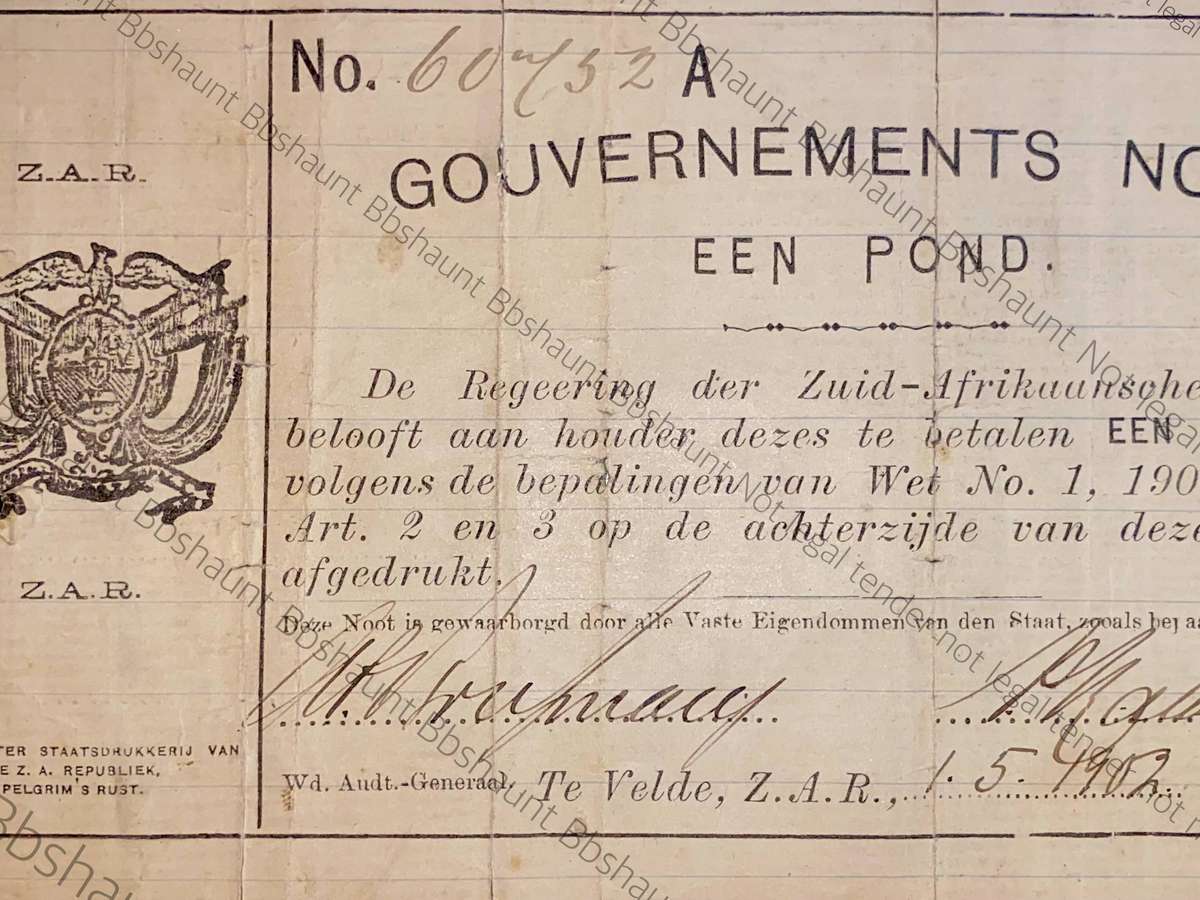 No. 60752 A
Z.A.R.
GOUVERNEMENTS NO
EEN POND.
De Regeering der Zuid-Afrikaansche
belooft aan houder dezes te betalen EEN
volgens de bepalingen van Wet No. 1, 190
Art. 2 en 3 op de achterzijde van deze
afgedrukt.
Z.A.R.
Deze Noot is gewaarborgd door alle Vaste Eigendommen van den Staat, zooals bepaa
TER STAATSDRUKKERIJ VAN
E Z. A. REPUBLIEK,
PELGRIM'S RUST.
Wd. Audt.-Generaal. Te Velde, Z.A.R., 1. 5. 1902
Bbshaunt Bbshaunt Bbshaunt Bbshaunt Not legal tender, not legal tender, not